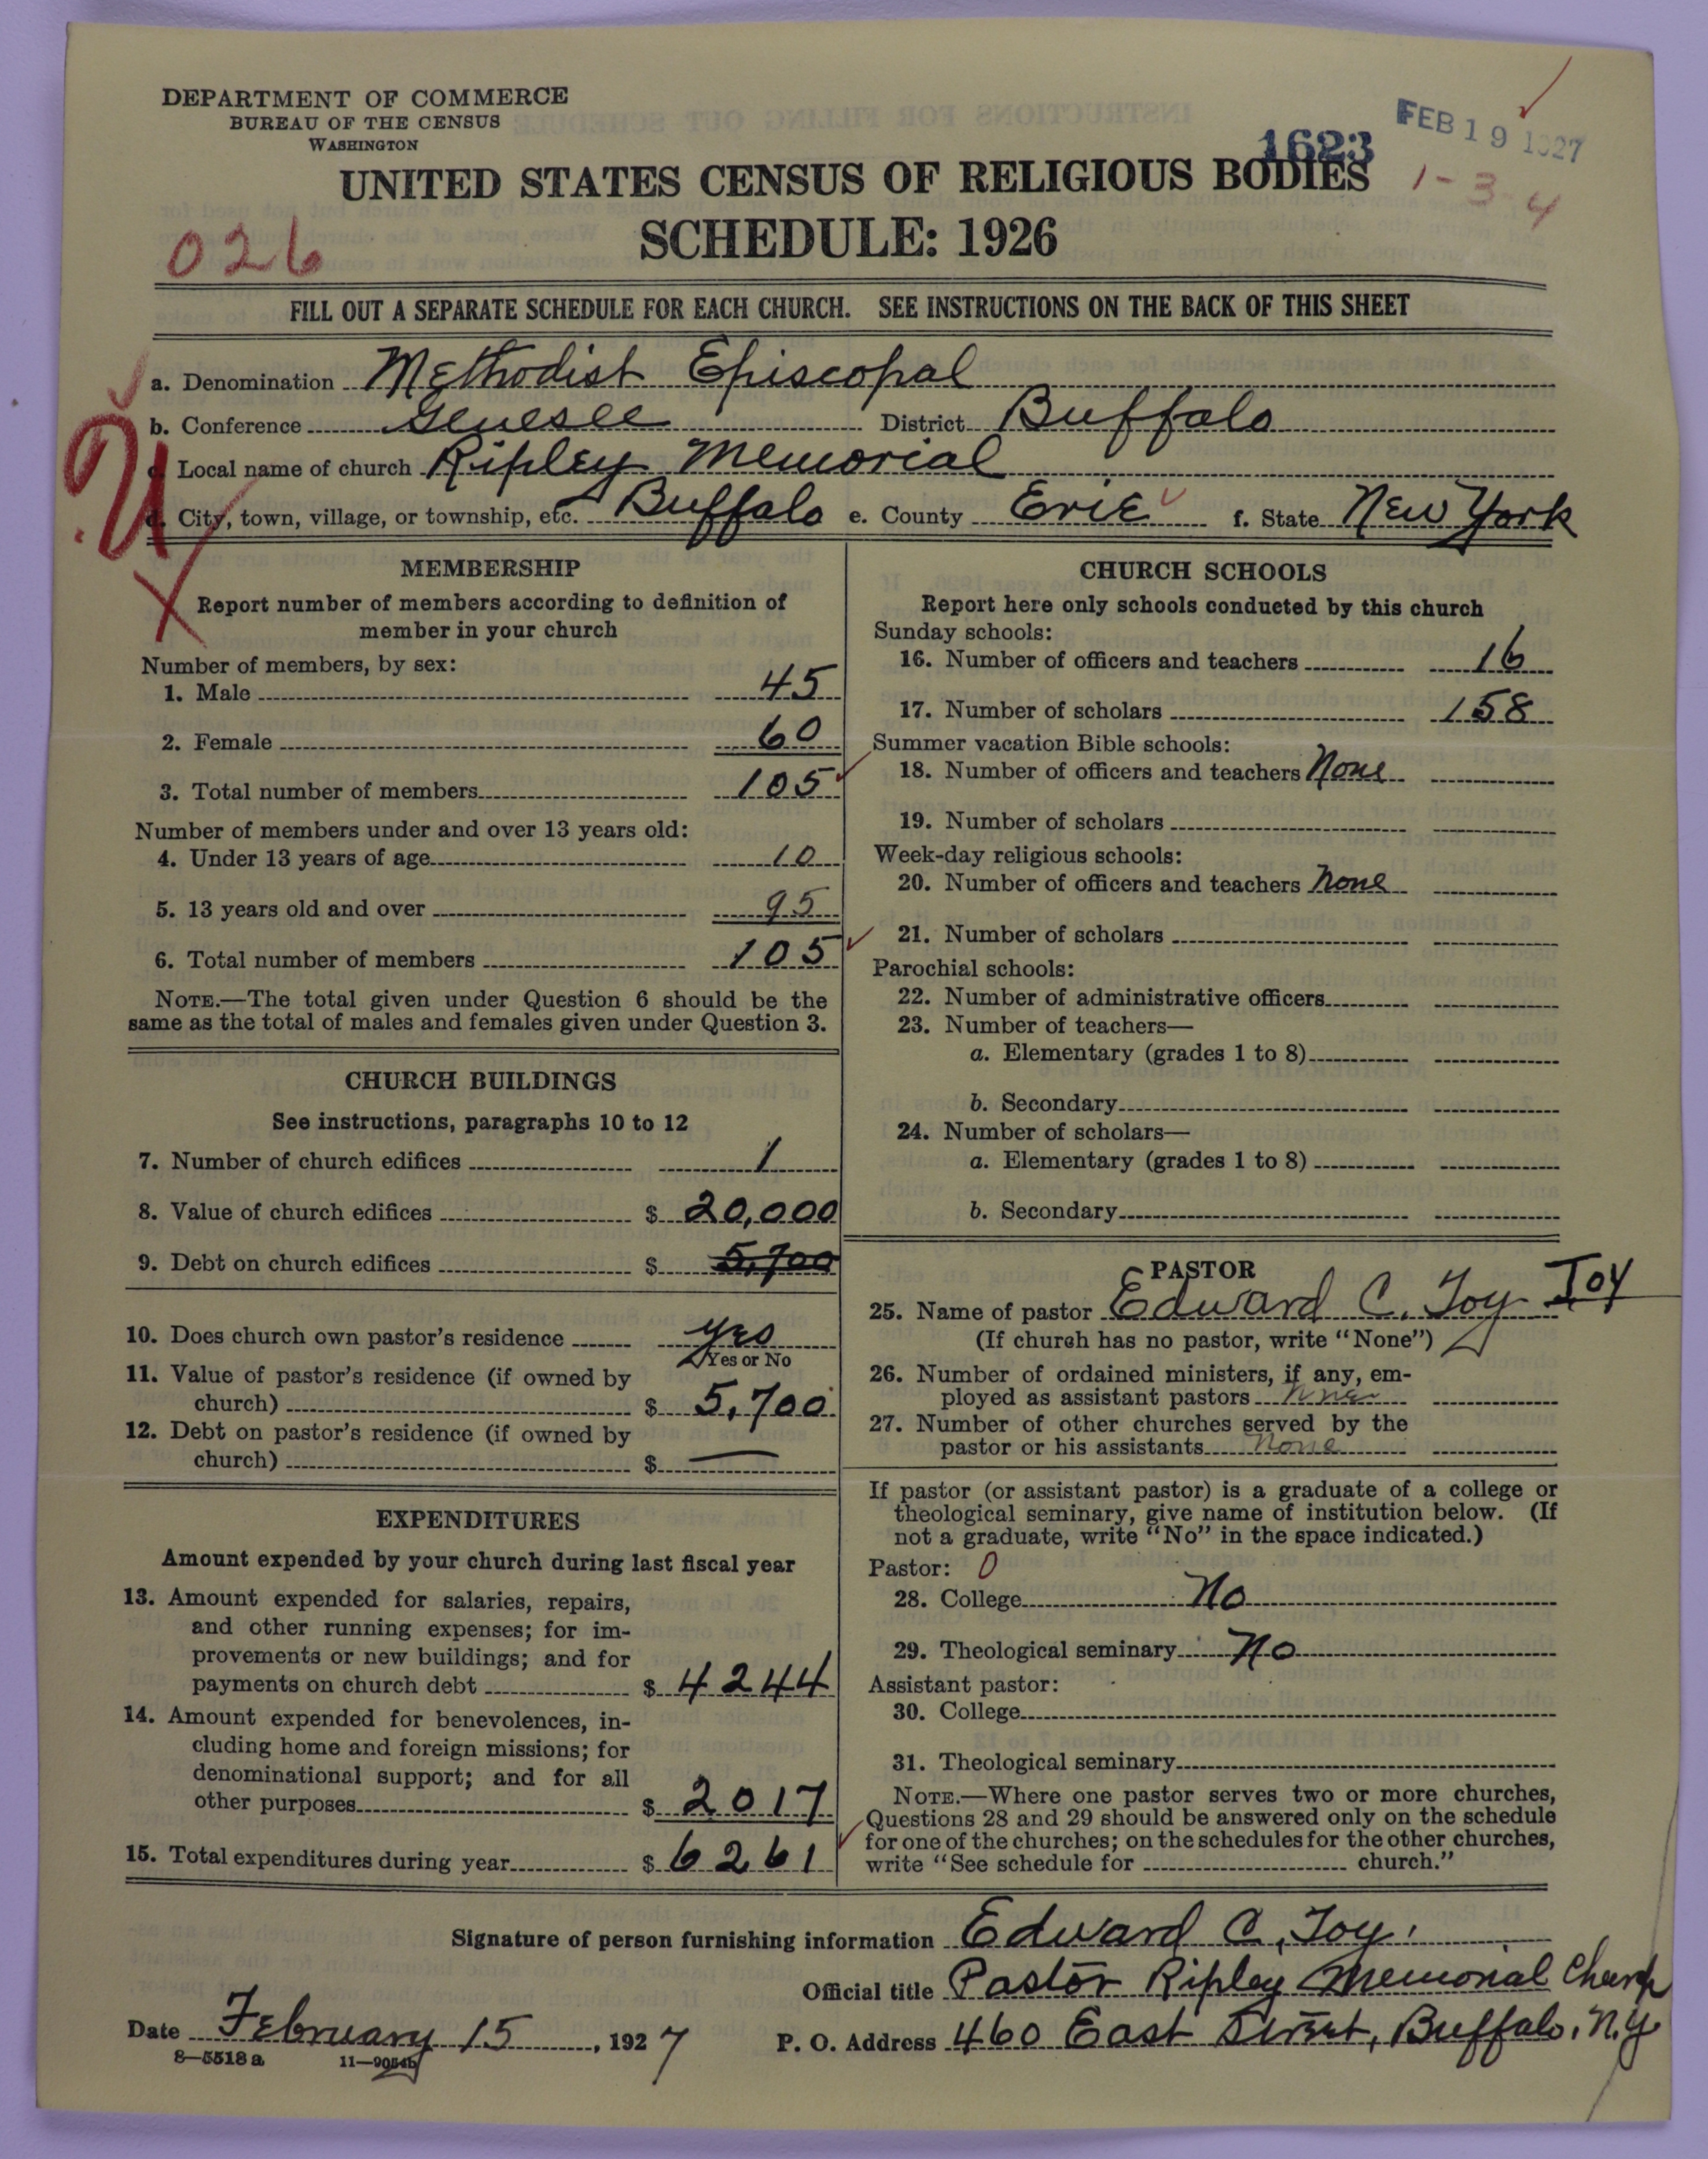 DEPARTMENT OF COMMERCE
BUREAU OF THE CENSUS
WASHINGTON
FEB 19 1927
1623
UNITED STATES CENSUS OF RELIGIOUS BODIES
1-3-4
SCHEDULE: 1926
026
FILL OUT A SEPARATE SCHEDULE FOR EACH CHURCH. SEE INSTRUCTIONS ON THE BACK OF THIS SHEET
a. Denomination Methodist Episcopal
b. Conference Genesee District Buffalo
c. Local name of church Ripley Memorial
d. City, town, village, or township, etc. Buffalo e. County Erie f. State New York
MEMBERSHIP
Report number of members according to definition of
member in your church
Number of members, by sex:
1. Male 45
2. Female 60
3. Total number of members 105
Number of members under and over 13 years old:
4. Under 13 years of age 10
5. 13 years old and over 95
6. Total number of members 105
NOTE.—The total given under Question 6 should be the
same as the total of males and females given under Question 3.
CHURCH BUILDINGS
See instructions, paragraphs 10 to 12
7. Number of church edifices 1
8. Value of church edifices $ 20,000
9. Debt on church edifices $ 5,700
10. Does church own pastor's residence yes
Yes or No
11. Value of pastor's residence (if owned by
church) $ 5,700
12. Debt on pastor's residence (if owned by
church) $ —
EXPENDITURES
Amount expended by your church during last fiscal year
13. Amount expended for salaries, repairs,
and other running expenses; for im-
provements or new buildings; and for
payments on church debt $ 4244
14. Amount expended for benevolences, in-
cluding home and foreign missions; for
denominational support; and for all
other purposes $ 2017
15. Total expenditures during year $ 6261
CHURCH SCHOOLS
Report here only schools conducted by this church
Sunday schools:
16. Number of officers and teachers 16
17. Number of scholars 158
Summer vacation Bible schools:
18. Number of officers and teachers None
19. Number of scholars
Week-day religious schools:
20. Number of officers and teachers None
21. Number of scholars
Parochial schools:
22. Number of administrative officers
23. Number of teachers—
a. Elementary (grades 1 to 8)
b. Secondary
24. Number of scholars—
a. Elementary (grades 1 to 8)
b. Secondary
PASTOR
25. Name of pastor Edward C. Joy JOY
(If church has no pastor, write "None")
26. Number of ordained ministers, if any, em-
ployed as assistant pastors None
27. Number of other churches served by the
pastor or his assistants None
If pastor (or assistant pastor) is a graduate of a college or
theological seminary, give name of institution below. (If
not a graduate, write "No" in the space indicated.)
Pastor: 0
28. College No
29. Theological seminary No
Assistant pastor:
30. College
31. Theological seminary
NOTE.—Where one pastor serves two or more churches,
Questions 28 and 29 should be answered only on the schedule
for one of the churches; on the schedules for the other churches,
write "See schedule for church."
Signature of person furnishing information Edward C. Joy.
Official title Pastor Ripley Memorial Church
Date February 15, 1927 P. O. Address 460 East Street, Buffalo, N.Y
8—5518 a 11—9054b